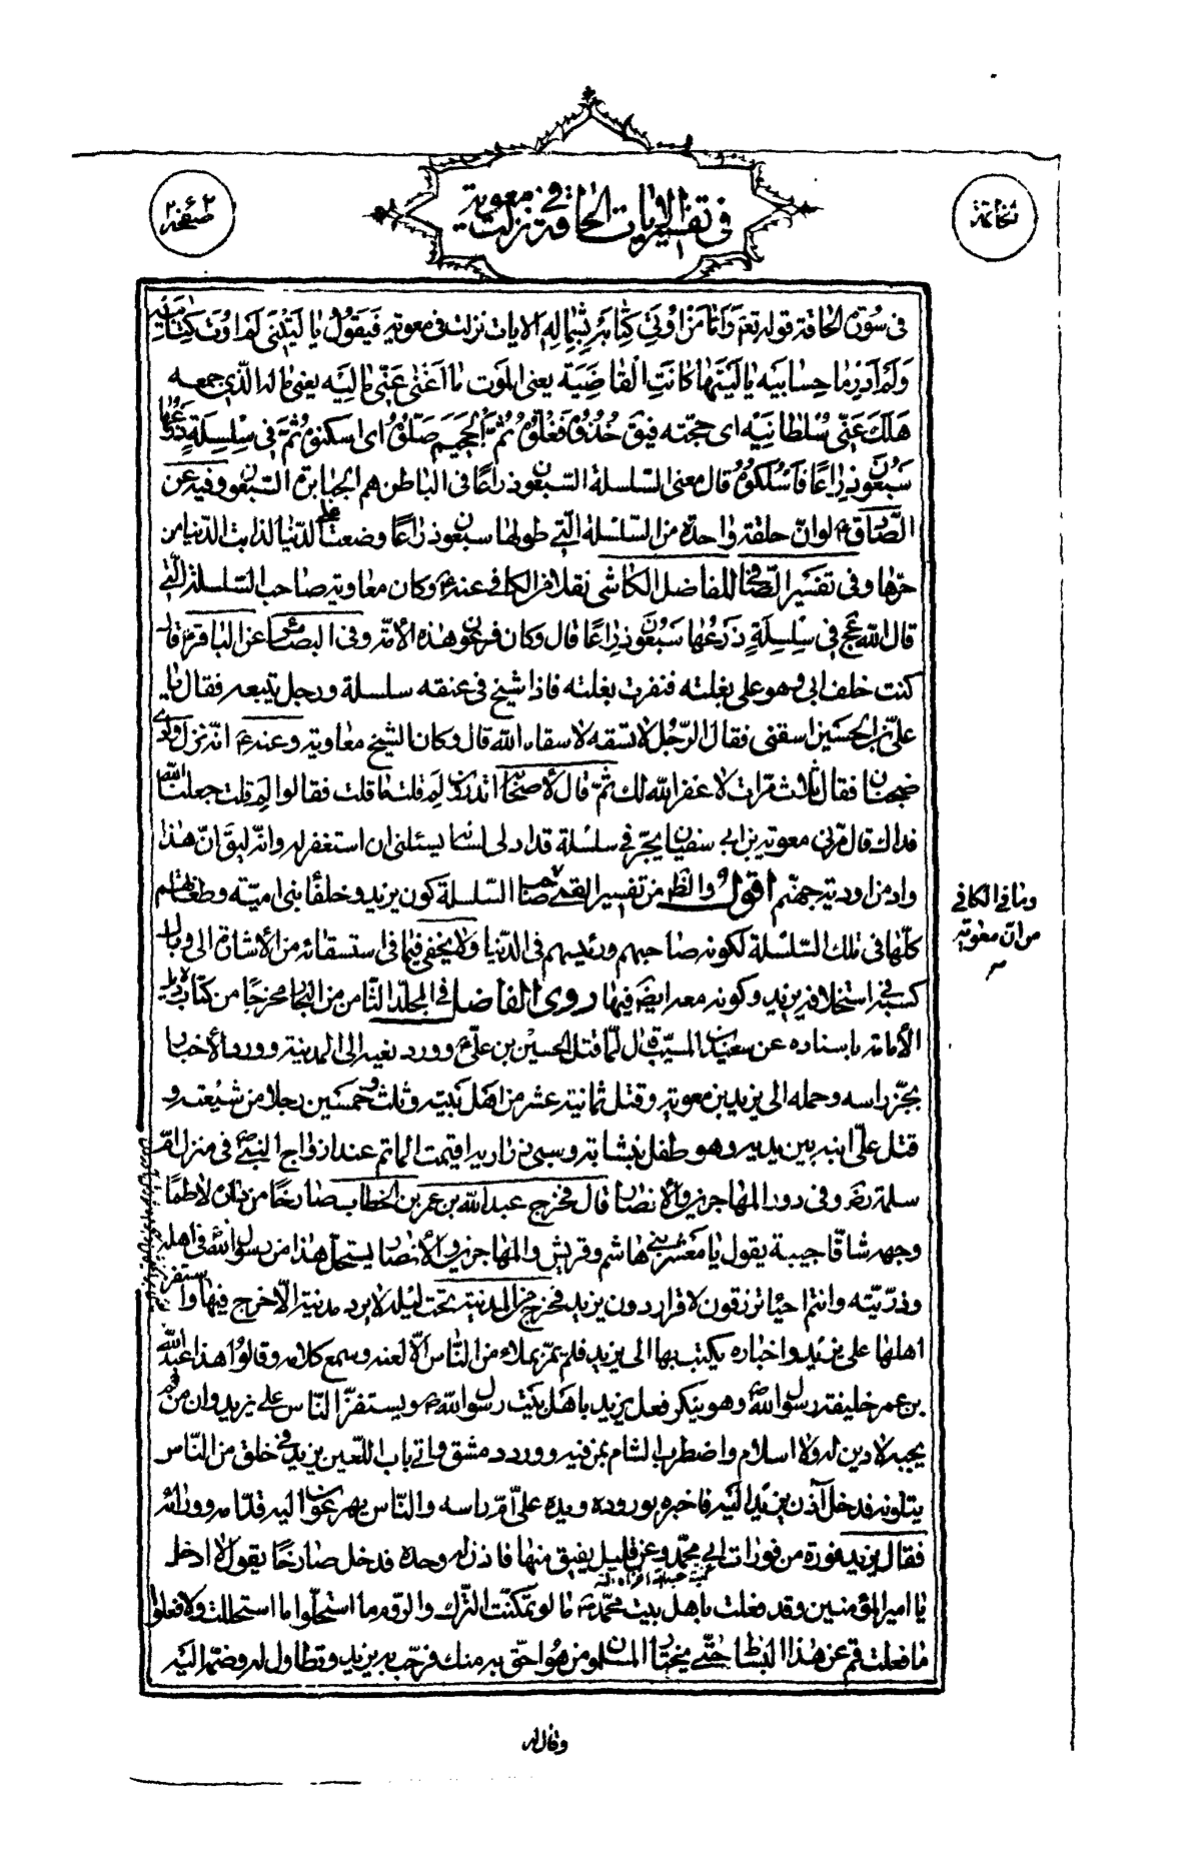 صفحه ٢٤٢
في تفسير الايات الحاقة في نزلت معوية
خاتمة
في سورة الحاقة قوله تعم وَاَمّا مَنْ اوُتِيَ كِتابَهُ بِشِمالِهِ الايات نزلت في معوية فَيَقُولُ يا لَيْتَني لَمْ اُوتَ كِتابِيَهْ
وَلَمْ اَدْرِ ما حِسابِيَه يا لَيْتَها كانَتِ الْقاضِيَة يعني الموت ما اَغْنى عَنّي مالِيَه يعني ماله الّذي جمعه
هَلَكَ عَنّي سُلْطانِيَه اى حجّته فيق خُذُوهُ فَغُلُّوهُ ثُمَّ الْجَحيمَ صَلُّوهُ اى اسكنوه ثُمَّ في سِلْسِلَةٍ ذَرْعُها
سَبْعُونَ ذِراعًا فَاسْلُكُوهُ قال معنى السّلسلة السّبعون ذراعًا في الباطن هم الجبابرة السّبعون وفيه عن
الصّادق ع لو انّ حلقة واحدة من السّلسلة الّتي طولها سبعون ذراعًا وضعت على الدّنيا لذابت الدّنيا من
حرّها وفي تفسير الصّافي للفاضل الكاشي نقلا من الكافي عنه ع وكان معاوية صاحب السّلسلة الّتي
قال الله عج في سِلْسِلَةٍ ذَرْعُها سَبْعُونَ ذِراعًا قال وكان فرعون هذه الأمّة وفي البصائر عن الباقر ع قال
كنت خلف ابي وهو على بغلته فنفرت بغلته فاذا شيخ في عنقه سلسلة ورجل يتبعه فقال يا
عليّ بن الحسين اسقني فقال الرّجل لا تسقه لا سقاه الله قال وكان الشّيخ معاوية وعنه ع انّه نزل وادي
ضجنان فقال ثلاث مرّات لا غفر الله لك ثمّ قال لأصحابه اتدرون لم قلت ما قلت فقالوا لم قلت جعلنا الله
فداك قال مرّ بي معوية بن ابي سفيان يجرّ في سلسلة قد ادلى لسانه يسئلني ان استغفر له وانّه ليق انّ هذا
واد من اودية جهنّم اقول والظّ من تفسير القمّي صاحب السّلسلة كون يزيد وخلفا بني اميّة وطغاتهم
كلّها في تلك السّلسلة لكونه صاحبهم ورئيسهم في الدّنيا ولا يخفى فيما في استسقائه من الأشارة الى وبال
كسبه في استخلافه يزيد وكونه معه ايض فيها روى الفاضل في المجلّد الثّامن من البحار مخرجًا من كتاب دلايل
الأمامة باسناده عن سعيد بن المسيّب قال لمّا قتل الحسين بن علي ع وورد نعيه الى المدينة وورد الأخبار
بجزّ راسه وحمله الى يزيد بن معوية وقتل ثمانية عشر من اهل بيته وثلث وخمسين رجلا من شيعته و
قتل عليّ ابنه بين يديه وهو طفل بنشابة وسبي ذراريه اقيمت المآتم عند ازواج النّبي ص في منزل امّ
سلمة رض وفي دور المهاجرين والأنصار قال فخرج عبد الله بن عمر بن الخطاب صارخًا من داره لاطمًا
وجهه شاقّا جيبه يقول يا معشر بني هاشم وقريش والمهاجرين والأنصار يستحلّ هذا من رسول الله ص في اهله
وذرّيّته وانتم احياء ترزقون لا قرار دون يزيد فخرج من المدينة تحت ليله لا يرد مدينة الّا خرج فيها واستنفر
اهلها على يزيد واخباره يكتب بها الى يزيد فلم يمرّ بملاء من النّاس الّا لعنه وسمع كلامه وقالوا هذا عبد الله
بن عمر خليفة رسول الله ص وهو ينكر فعل يزيد باهل بيت رسول الله ص ويستفزّ النّاس على يزيد وان من لم
يجبه لا دين له ولا اسلام واضطرب الشام بمن فيه وورد دمشق واتى باب اللّعين يزيد في خلق من النّاس
يتلونه فدخل آذن يزيد اليه فاخبره بوروده ويده على امّ راسه والنّاس يهرعون اليه قدّامه وورائه
فقال يزيد فورة من فورات ابي محمّد وعن قليل يفيق منها فاذن له وحده فدخل صارخًا يقول لا ادخل
يا امير المؤمنين وقد فعلت باهل بيت محمّد ص ما لو تمكّنت التّرك والرّوم ما استحلّوا ما استحللت ولا فعلوا
ما فعلت قم عن هذا البساط حتّى يختار المسلمون من هو احقّ به منك فرحّب به يزيد وتطاول له وضمّه اليه
وما في الكافي
من ان معوية
وقال له